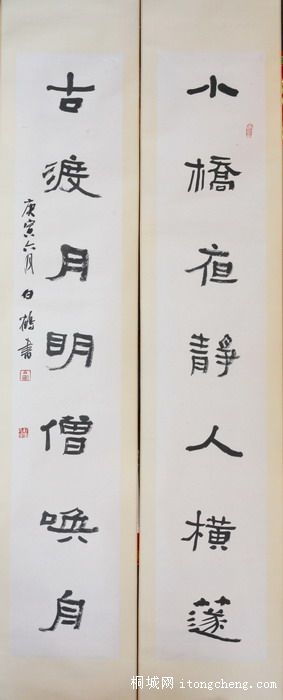 小橋夜靜人橫篴
古渡月明僧喚舟
庚寅六月白鶴書
桐城网 itongcheng.com